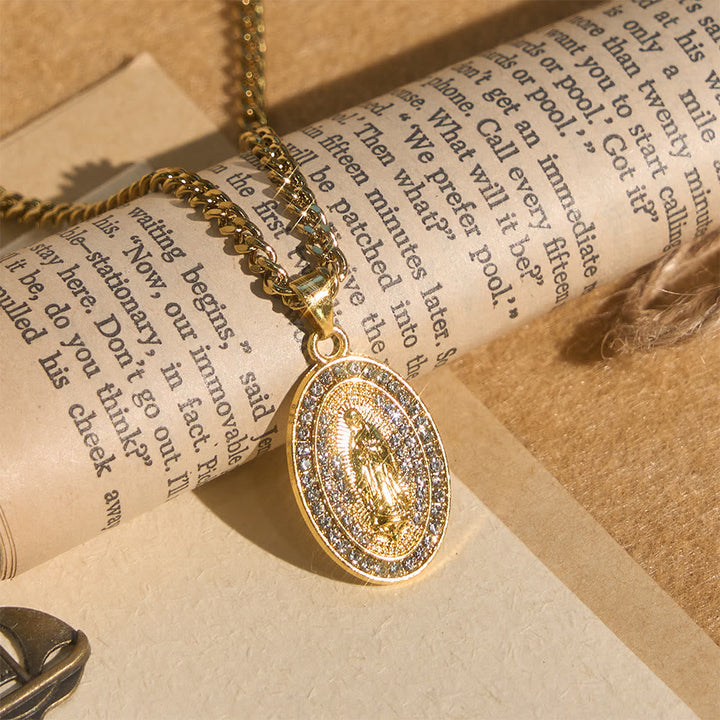 at his
is only a mile
more than twenty minutes
want you to start calling
or pool.' Got it?"
or pool.'"
get an immediate
phone. Call every fifteen
What will it be?'
"'We prefer pool.'
Then what?"
in fifteen minutes later.
will be patched into the
the first
waiting begins," said Len
his. "Now, our immovable
ble-stationary, in fact.
stay here. Don't go out. I'll
it be, do you think?"
pulled his cheek away